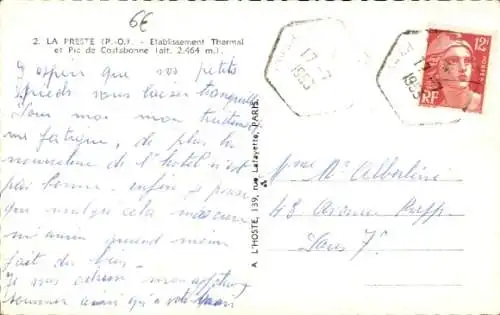 6€
2. LA PRESTE (P.-O.). - Etablissement Thermal
et Pic de Costabonne (alt. 2.464 m.).
J'espère que vos petits
pieds vous laissent tranquille
Pour moi mon traitement
me fatigue, de plus la
nourriture de l'hotel n'est
pas bonne. enfin je pense
que malgré cela ma cure
m'aura quand même
fait du bien.
Je vous adresse mon affectueux
souvenir ainsi qu'à votre mari
A L'HOSTE, 139, rue Lafayette, PARIS.
17 - 7
1953
17 - 7
1953
12F
POSTES
RF
Mme Mr Albertini
48 Avenue Rapp.
Paris 7e